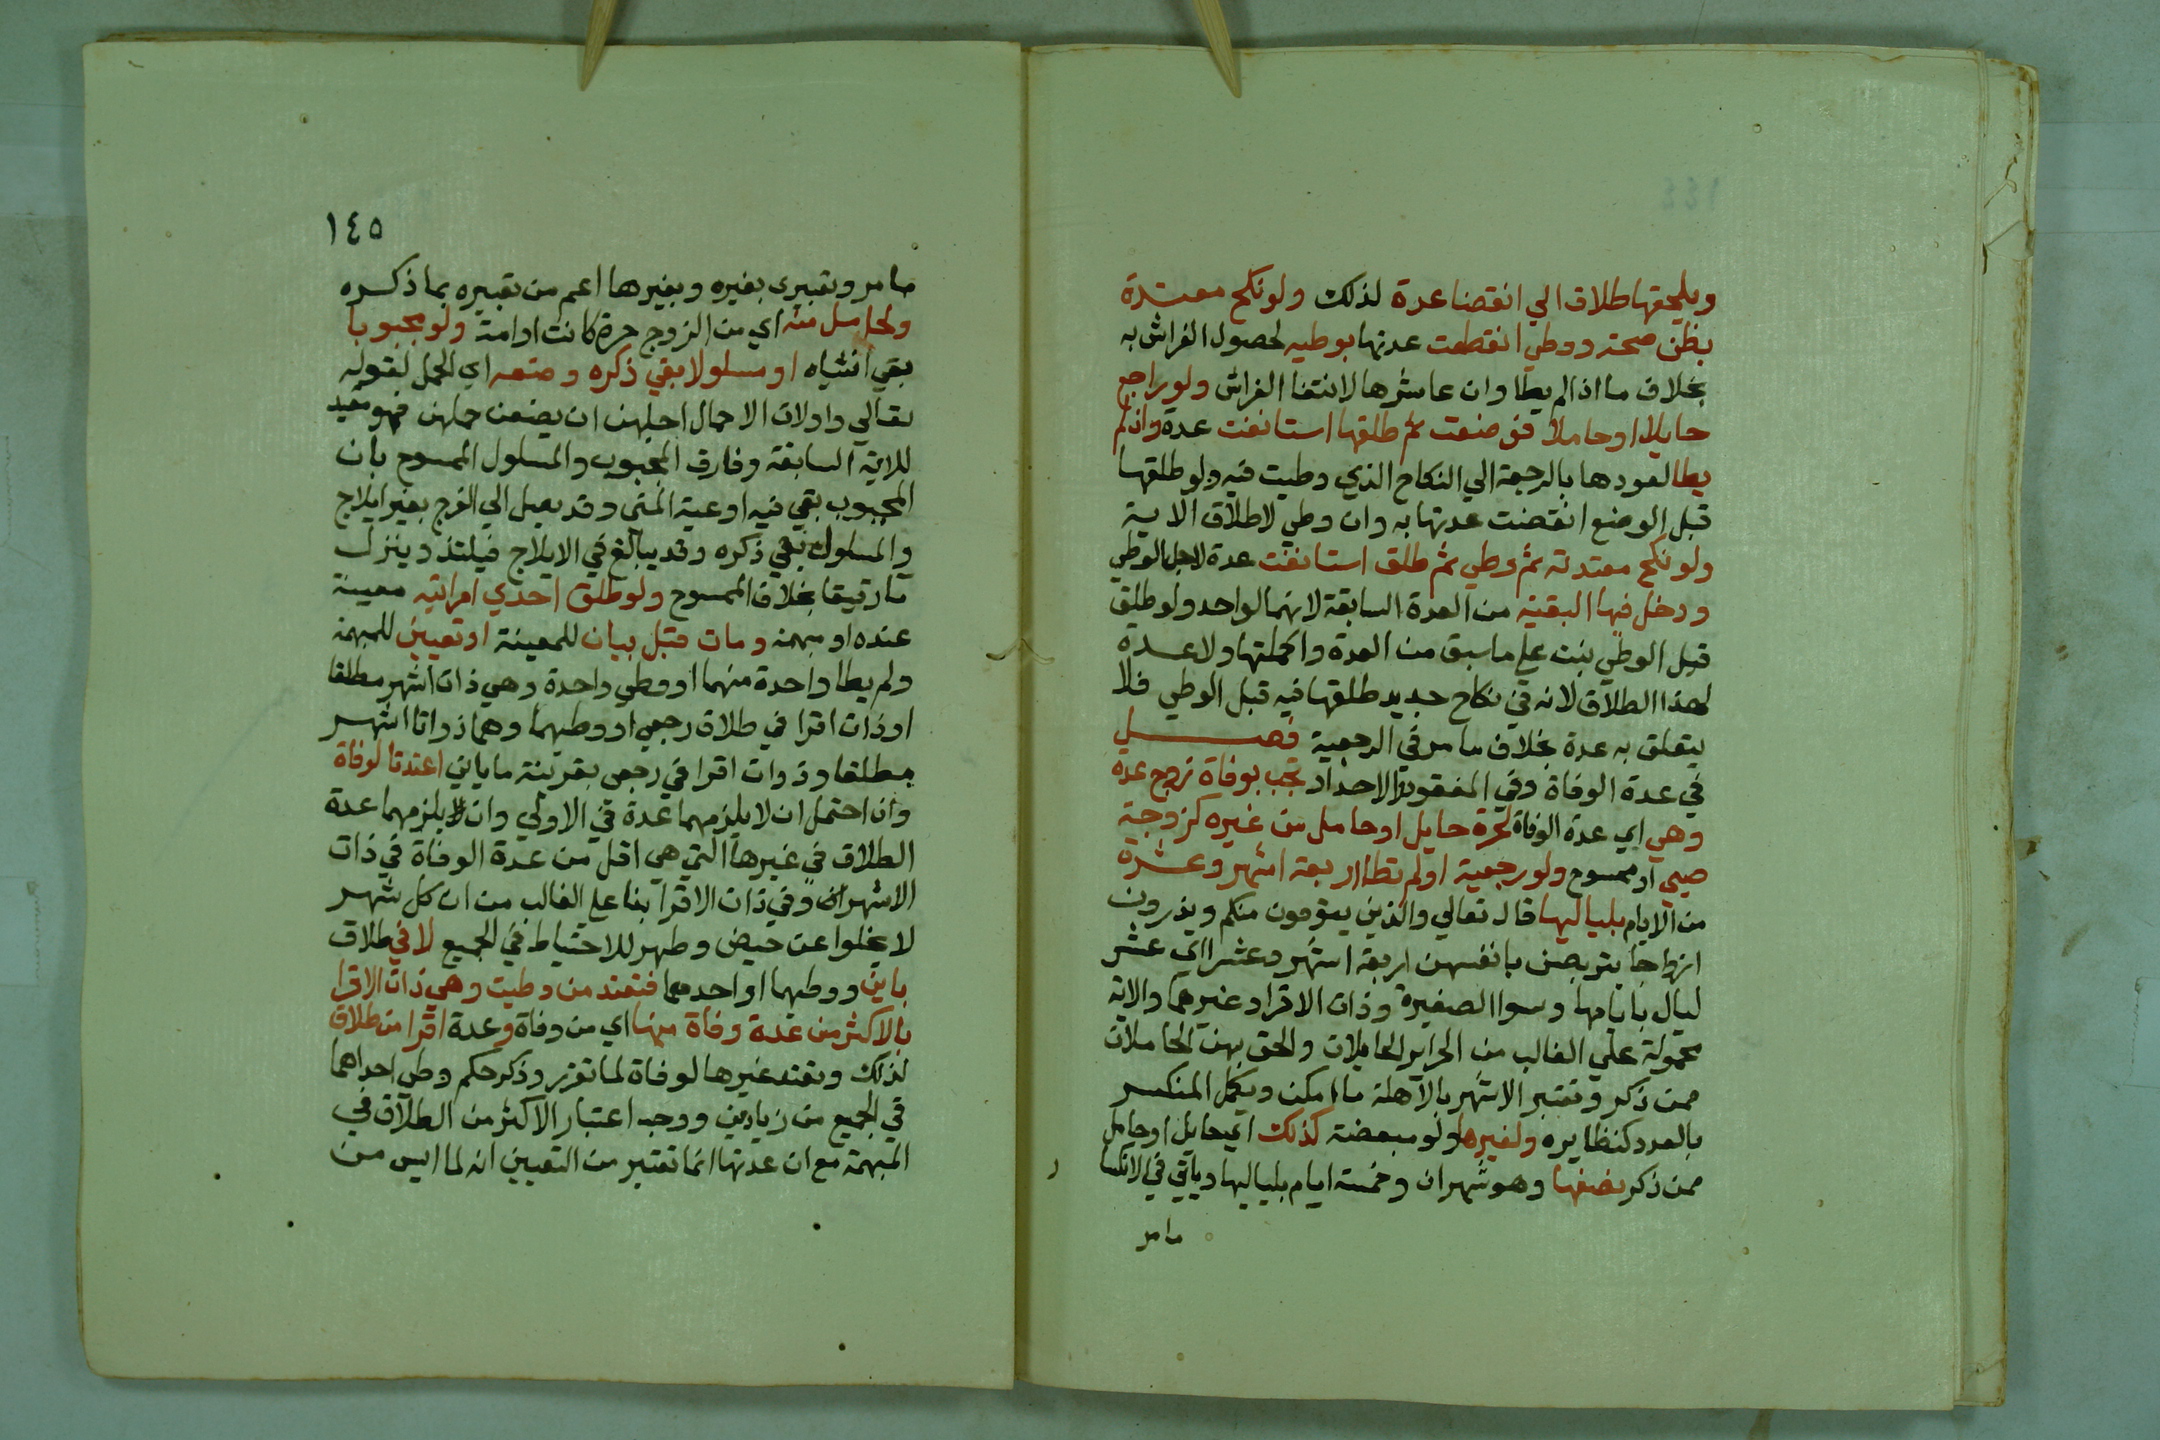 ويلحقها طلاق الي انقضا عدة لذلك ولو نكح معتدة
بظن صحة ووطي انقطعت عدتها بوطيه لحصول الفراش به
بخلاف ما اذا لم يطا وان عاشرها لانتفا الفراش ولو راجع
حايلا او حاملا فوضعت ثم طلقها استانفت عدة وان لم
يطا لعودها بالرجعة الي النكاح الذي وطيت فيه ولو طلقها
قبل الوضع انقضت عدتها به وان وطي لاطلاق الاية
ولو نكح معتدته ثم وطي ثم طلق استانفت عدة لاجل الوطي
ودخل فيها البقية من العدة السابقة لانهما لواحد ولو طلق
قبل الوطي بنت علي ما سبق من العدة واكملتها ولا عدة
لهذا الطلاق لانه في نكاح جديد طلقها فيه قبل الوطي فلا
يتعلق به عدة بخلاف ما مر في الرجعية فصل
في عدة الوفاة وفي المفقود والاحداد تجب بوفاة زوج عدة
وهي اي عدة الوفاة لحرة حايل او حامل من غيره كزوجة
صبي او ممسوح ولو رجعية او لم تطا اربعة اشهر وعشرة
من الايام بلياليها قال تعالي والذين يتوفون منكم ويذرون
ازواجا يتربصن بانفسهن اربعة اشهر وعشرا اي عشر
ليال بايامها وسوا الصغيرة وذات الاقرا وغيرهما والاية
محمولة علي الغالب من الحراير الحايلات والحق بهن الحاملات
ممن ذكر وتعتبر الاشهر بالاهلة ما امكن ويكمل المنكسر
بالعدد كنظايره ولغيرها ولو مبعضة كذلك اي حايل او حامل
ممن ذكر نصفها وهو شهران وخمسة ايام بلياليها وياتي في الانكسا
ر
ما مر
١٤٥
ما مر وتعبيري بغيره وبغيرها اعم من تعبيره بما ذكره
ولحامل منه اي من الزوج حرة كانت او امة ولو مجبوبا
بقي انثياه او مسلولا بقي ذكره وضعه اي الحمل لقوله
تعالي واولات الاحمال اجلهن ان يضعن حملهن فهو مقيد
للاية السابقة وفارق المجبوب والمسلول الممسوح بان
المجبوب بقي فيه اوعية المني وقد يصل الي الفرج بغير ايلاج
والمسلول بقي ذكره وقد يبالغ في الايلاج فيلتذ وينزل
ما رقيقا بخلاف الممسوح ولو طلق احدي امراتيه معينة
عنده او مبهمة ومات قبل بيان للمعينة او تعيين للمبهمة
ولم يطا واحدة منهما او وطي واحدة وهي ذات اشهر مطلقا
او ذات اقرا في طلاق رجعي او وطيهما وهما ذواتا اشهر
مطلقا وذوات اقرا في رجعي بقرينة ما ياتي اعتدتا لوفاة
وان احتمل ان لا يلزمهما عدة في الاولي وان لا يلزمهما عدة
الطلاق في غيرها التي هي اقل من عدة الوفاة في ذات
الاشهر وفي ذات الاقرا بنا علي الغالب من ان كل شهر
لا يخلوا عن حيض وطهر للاحتياط في الجميع لا في طلاق
باين ووطيهما او احدهما فتعتد من وطيت وهي ذات الاقرا
بالاكثر من عدة وفاة منها اي من وفاة وعدة اقرا من طلاق
لذلك وتعتد غيرها لوفاة لما تقرر وذكر حكم وطي احداهما
في الجميع من زيادتي ووجه اعتبار الاكثر من الطلاق في
المبهمة مع ان عدتها انما تعتبر من التعيين انه لما ايس من